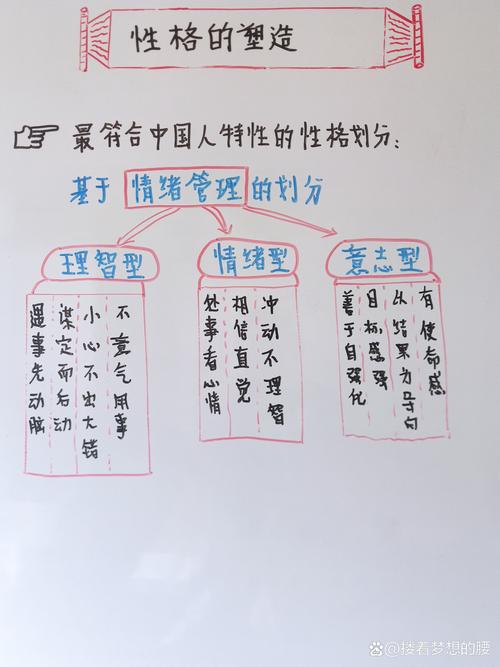 性格的塑造
最符合中国人特性的性格划分:
基于情绪管理的划分
理智型
不意气用事
小心不出大错
谋定而后动
遇事先动脑
情绪型
冲动不理智
相信直觉
处事看心情
意志型
有使命感
以结果为导向
目标感强
善于自强化
搂着梦想的腰